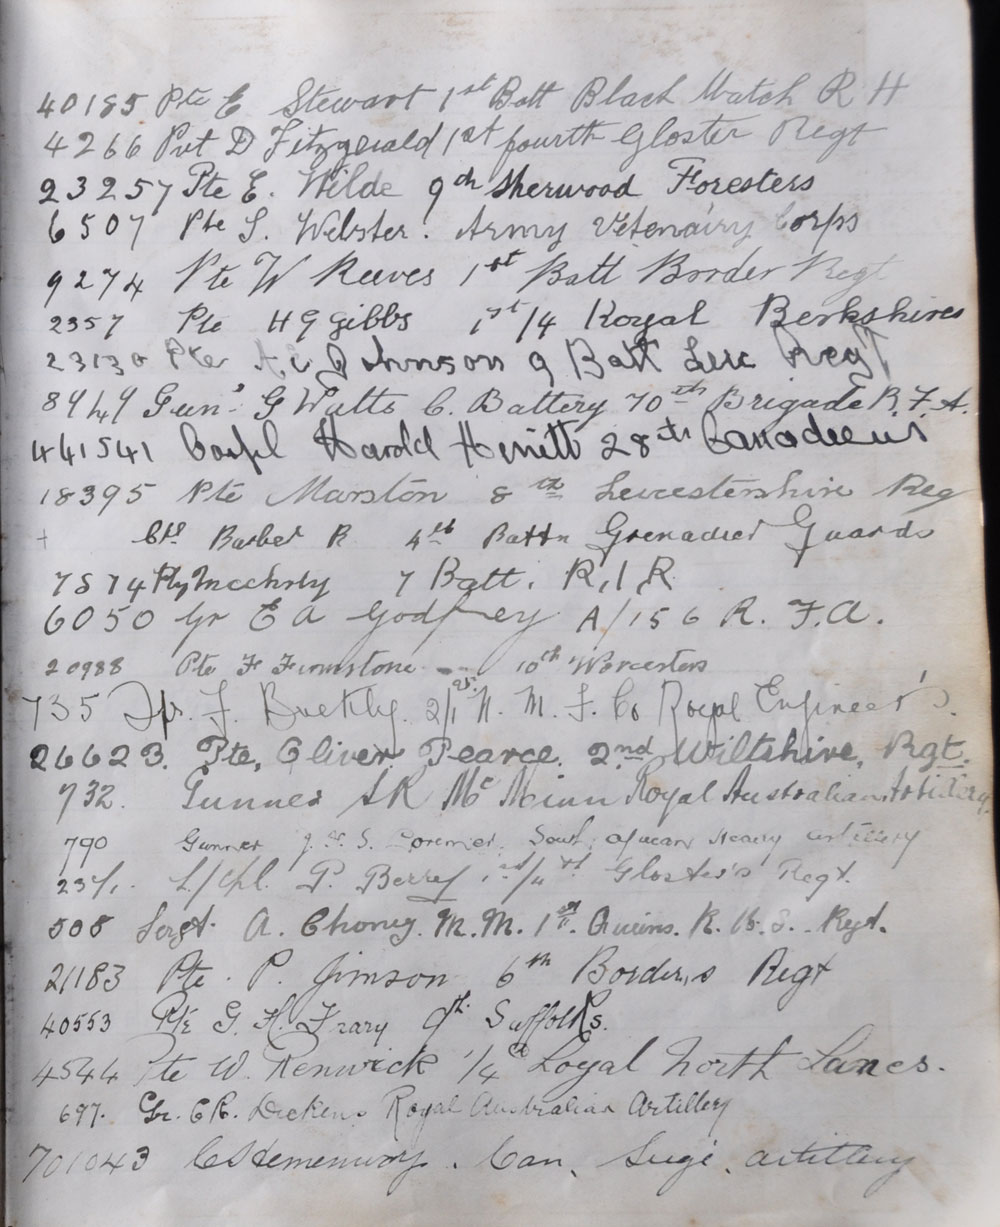 40185 Pte E Stewart 1st Batt Black Watch R H
4266 Pvt D Fitzgerald 1st fourth Gloster Regt
23257 Pte E. Wilde 9th Sherwood Foresters
6507 Pte S. Webster. Army Vetenairy Corps
9274 Pte W Reeves 1st Batt Border Regt
2357 Pte H G Gibbs 1st/4 Royal Berkshires
23130 Pte Johnson 9 Batt Leic Regt
Gunr G Watts C. Battery 70th Brigade R.F.A.
441541 Corpl Harold Hewitt 28th Canadians
18395 Pte Marston 8th Leicestershire Reg
Barber R 4th Battn Grenadier Guards
7574 7 Batt. R.I.R
6050 Gr E A Godfrey A/156 R.F.A.
20988 Pte F Firmstone -- 10th Worcesters
735 Spr. F. 2/1st N.M.F. Co Royal Engineer's.
26623. Pte, Oliver Pearce. 2nd Wiltshire, Rgt.
732. Gunner S R McMinn Royal Australian Artillery
790 Gunner South African Heavy artillery
L/Cpl. P. Berry 1st/4th Gloster's Regt.
508 Sergt. A. Choney. M.M. 1st. Queens. R. W. S. Regt.
21183 Pte. P. Jimson 6th Borders Regt
40553 Pte G. H. Frary 9th. Suffolks.
4544 Pte W. Renwick 1/4th Loyal North Lancs.
697. Gr. C R. Dickens Royal Australian Artillery
701043 C S Hemenway. Can. Seige. artillery